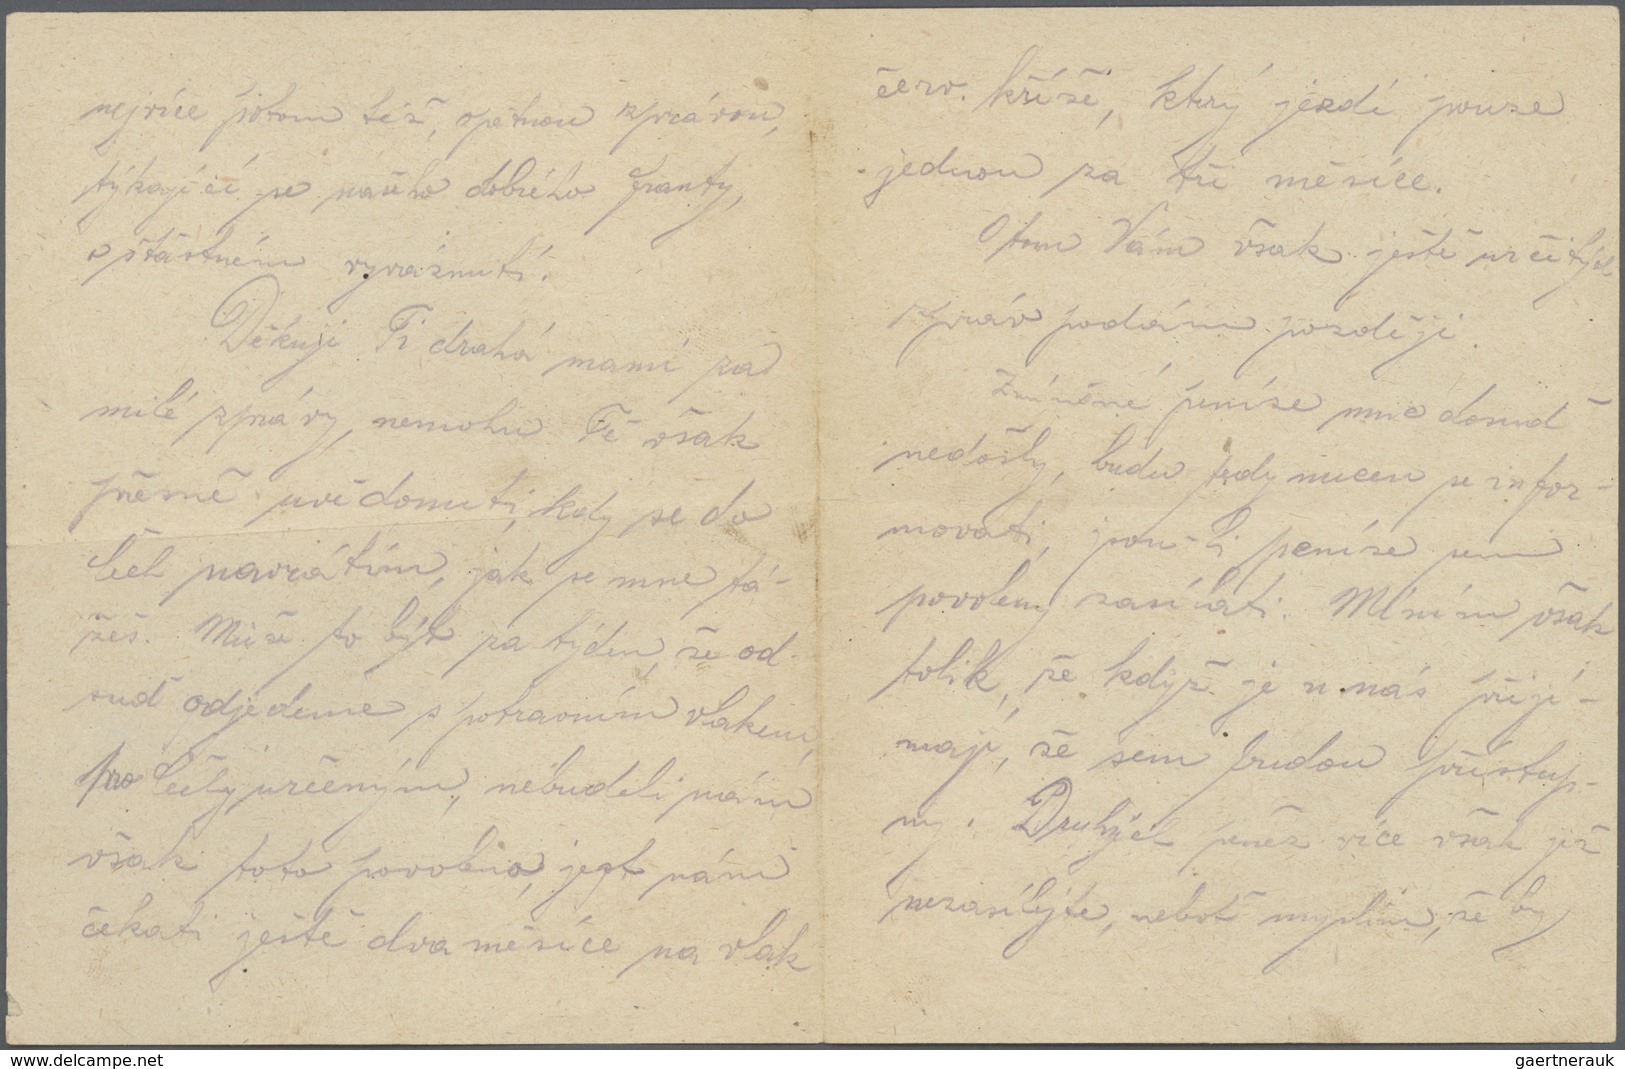 nejvíce potom též, opětnou zprávou,
týkající se našeho dobrého Franty,
o šťastném vyváznutí.
Děkuji Ti drahá mami za
milé zprávy, nemohu Tě však
přesně uvědomiti, kdy se do
Čech navrátím, jak se mne tá-
žeš. Může to být za týden, že od-
sud odjedeme s potravním vlakem,
pro Čechy určeným, nebudeli nám
však toto povoleno, jest nám
čekati ještě dva měsíce na vlak
červ. kříže, který jezdí pouze
jednou za tři měsíce.
O tom Vám však ještě určitých
zpráv podám později.
Zmíněné peníze mne dosud
nedošly, budu tedy nucen se infor-
movati, jsou-li peníze sem
povoleny zasílati. Míním však
tolik, že když je u nás přijí-
mají, že sem budou přístup-
ny. Druhých peněz více však již
nezasílejte, neboť myslím, že by
www.delcampe.net
gaertnerauk